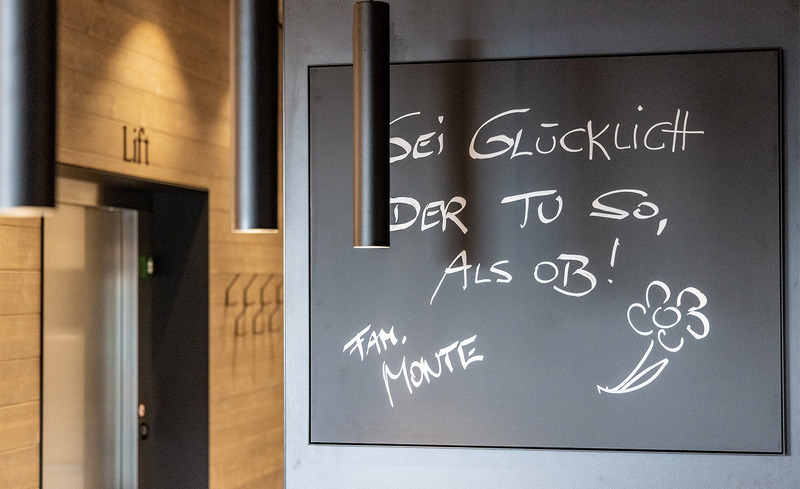 Lift
Sei GLÜCKLICH
DER TU SO,
ALS OB!
FAM.
MONTE